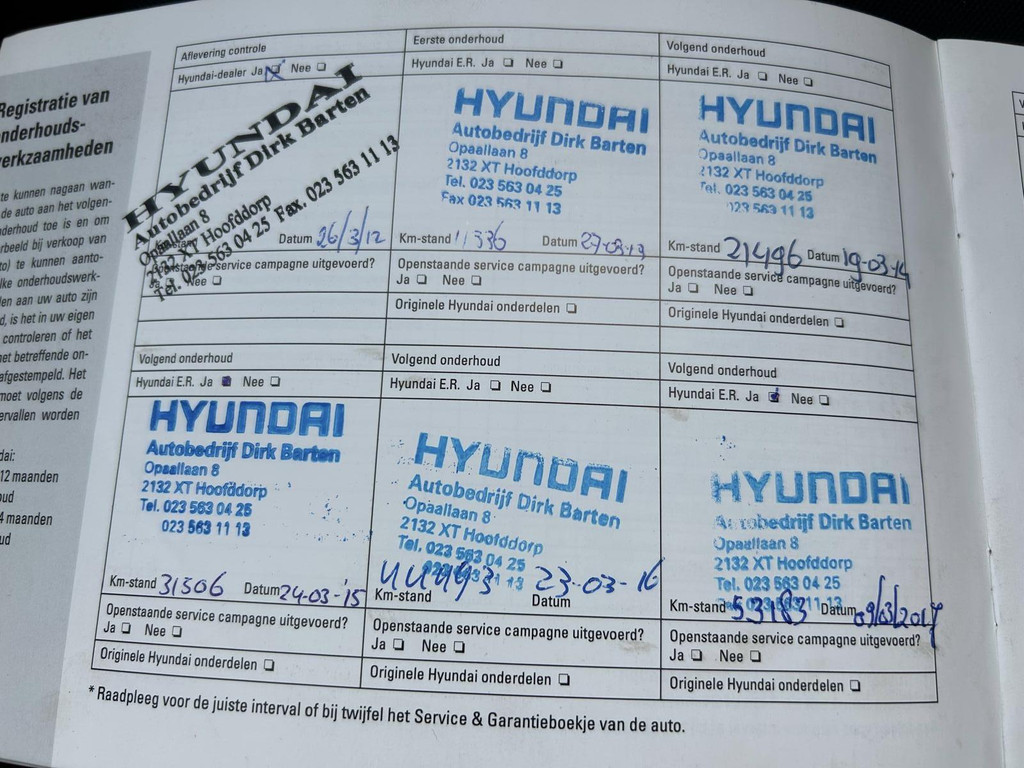 Registratie van
onderhouds-
werkzaamheden
te kunnen nagaan wan-
de auto aan het volgen-
nderhoud toe is en om
rbeeld bij verkoop van
to) te kunnen aanto-
lke onderhoudswerk-
len aan uw auto zijn
d, is het in uw eigen
controleren of het
het betreffende on-
afgestempeld. Het
moet volgens de
ervallen worden
dai:
12 maanden
oud
4 maanden
ud
Aflevering controle
Hyundai-dealer Ja Nee
HYUNDAI
Autobedrijf Dirk Barten
Opaallaan 8
2132 XT Hoofddorp
Tel. 023 563 04 25 Fax. 023 563 11 13
Datum 26/3/12
Openstaande service campagne uitgevoerd?
Ja Nee
Eerste onderhoud
Hyundai E.R. Ja Nee
HYUNDAI
Autobedrijf Dirk Barten
Opaallaan 8
2132 XT Hoofddorp
Tel. 023 563 04 25
Fax 023 563 11 13
Km-stand 11336 Datum 27-03-13
Openstaande service campagne uitgevoerd?
Ja Nee
Originele Hyundai onderdelen
Volgend onderhoud
Hyundai E.R. Ja Nee
HYUNDAI
Autobedrijf Dirk Barten
Opaallaan 8
2132 XT Hoofddorp
Tel. 023 563 04 25
023 563 11 13
Km-stand 21496 Datum 19-03-14
Openstaande service campagne uitgevoerd?
Ja Nee
Originele Hyundai onderdelen
Volgend onderhoud
Hyundai E.R. Ja Nee
HYUNDAI
Autobedrijf Dirk Barten
Opaallaan 8
2132 XT Hoofddorp
Tel. 023 563 04 25
023 563 11 13
Km-stand 31506 Datum 24-03-'15
Openstaande service campagne uitgevoerd?
Ja Nee
Originele Hyundai onderdelen
Volgend onderhoud
Hyundai E.R. Ja Nee
HYUNDAI
Autobedrijf Dirk Barten
Opaallaan 8
2132 XT Hoofddorp
Tel. 023 563 04 25
023 563 11 13
Km-stand 44493 Datum 23-03-16
Openstaande service campagne uitgevoerd?
Ja Nee
Originele Hyundai onderdelen
Volgend onderhoud
Hyundai E.R. Ja Nee
HYUNDAI
Autobedrijf Dirk Barten
Opaallaan 8
2132 XT Hoofddorp
Tel. 023 563 04 25
023 563 11 13
Km-stand 53183 Datum 09/03/2017
Openstaande service campagne uitgevoerd?
Ja Nee
Originele Hyundai onderdelen
* Raadpleeg voor de juiste interval of bij twijfel het Service & Garantieboekje van de auto.